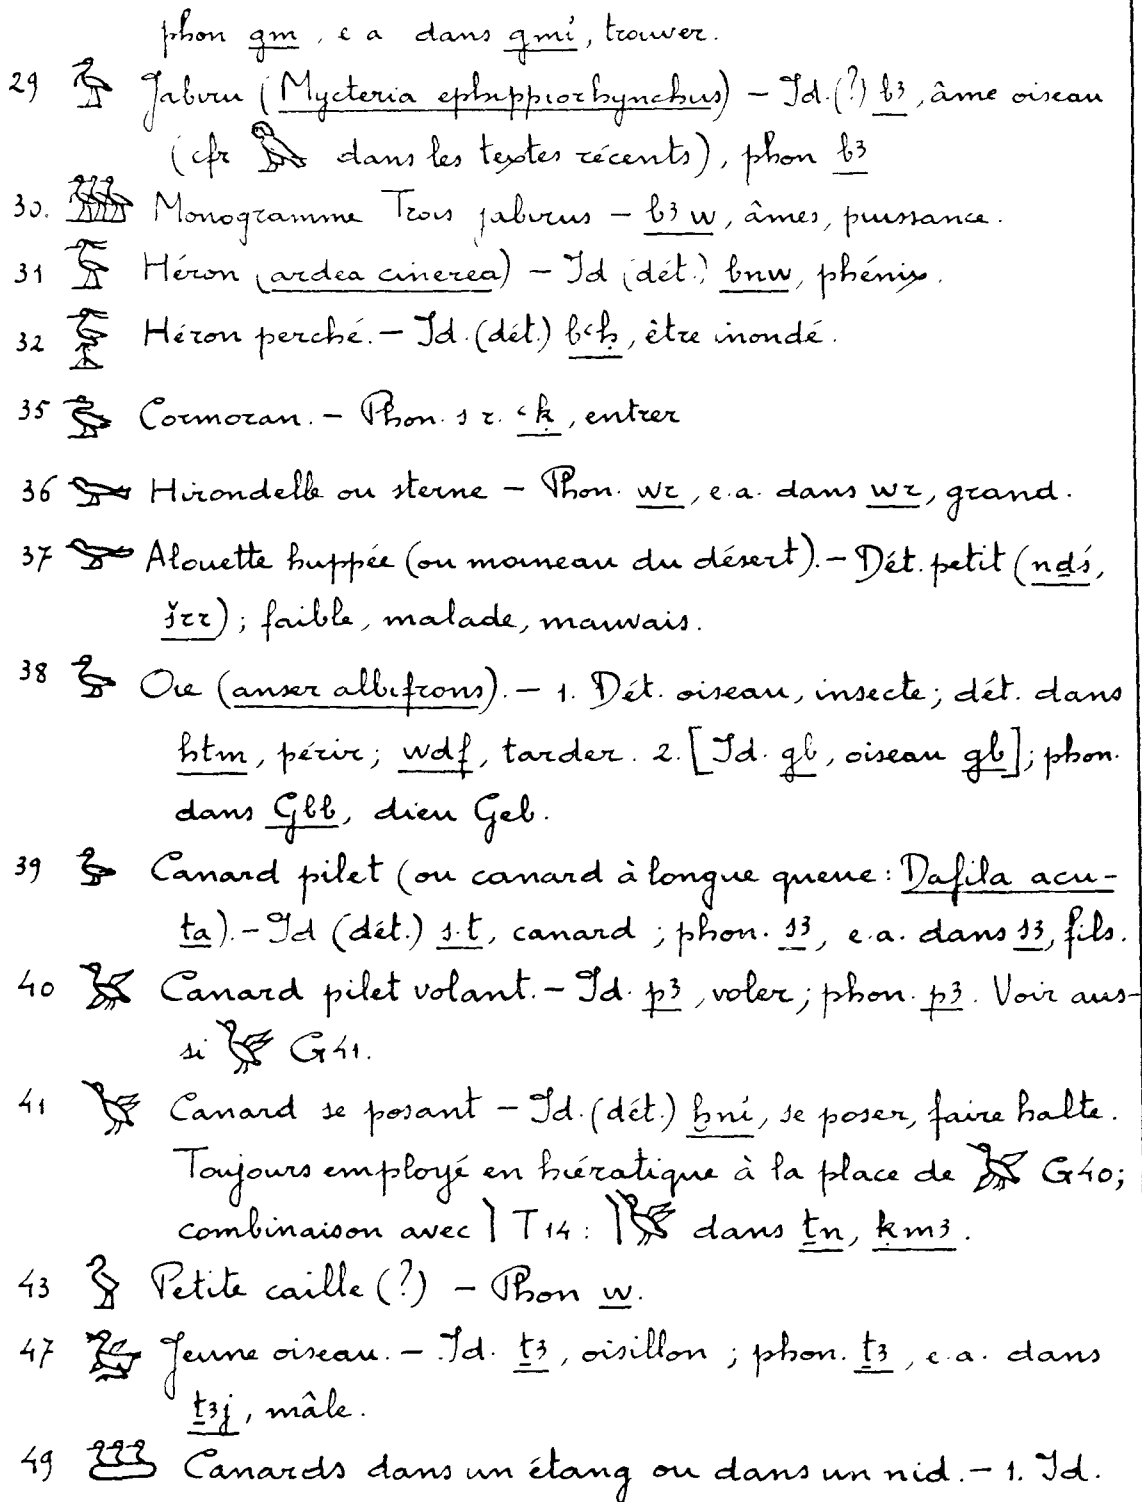 phon gm, e a dans gmỉ, trouver.
29 𓅡 Jabiru (Mycteria ephippiorhynchus) – Id. (?) bꜣ, âme oiseau
(cfr 𓅽 dans les textes récents), phon bꜣ
30. 𓅢 Monogramme Trois jabirus – bꜣw, âmes, puissance.
31 𓅣 Héron (ardea cinerea) – Id (dét.) bnw, phénix.
32 𓅤 Héron perché. – Id. (dét.) bꜥḥ, être inondé.
35 𓅧 Cormoran. – Phon. s r. ꜥḳ, entrer
36 𓅨 Hirondelle ou sterne – Phon. wr, e.a. dans wr, grand.
37 𓅪 Alouette huppée (ou moineau du désert). – Dét. petit (nḏś,
šrr) ; faible, malade, mauvais.
38 𓅬 Oie (anser albifrons). – 1. Dét. oiseau, insecte ; dét. dans
ḥtm, périr ; wdf, tarder. 2. [Id. gb, oiseau gb] ; phon.
dans Gbb, dieu Geb.
39 𓅭 Canard pilet (ou canard à longue queue : Dafila acu-
ta). – Id (dét.) s.t, canard ; phon. sꜣ, e.a. dans sꜣ, fils.
40 𓅮 Canard pilet volant. – Id. pꜣ, voler ; phon. pꜣ. Voir aus-
si 𓅯 G41.
41 𓅯 Canard se posant – Id. (dét.) ẖnỉ, se poser, faire halte.
Toujours employé en hiératique à la place de 𓅮 G40 ;
combinaison avec 𓌙 T14 : 𓌙𓅯 dans ṯn, ḳmꜣ.
43 𓅱 Petite caille (?) – Phon w.
47 𓅷 Jeune oiseau. – Id. ṯꜣ, oisillon ; phon. ṯꜣ, e.a. dans
ṯꜣj, mâle.
49 𓅹 Canards dans un étang ou dans un nid. – 1. Id.